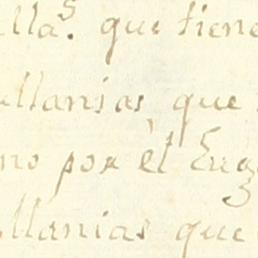 illaˢ. que tiene
ellanias que
no por èl Eug
ellanias que